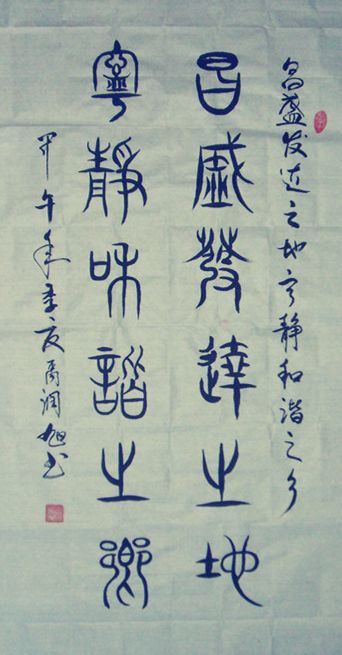 昌盛发达之地宁静和谐之乡
昌盛發達之地
寧靜和諧之鄉
甲午年季夏润旭书